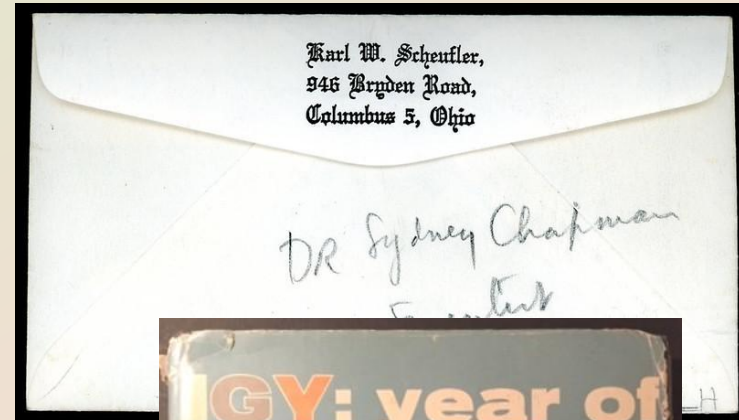 Karl W. Scheufler,
946 Bryden Road,
Columbus 5, Ohio
DR Sydney Chapman
IGY: year of
H